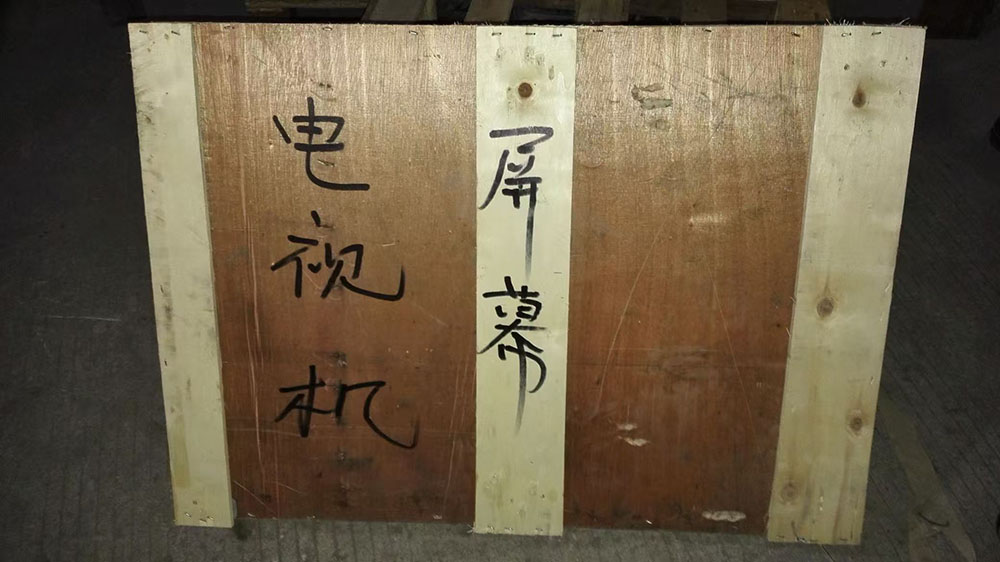 电视机
屏幕